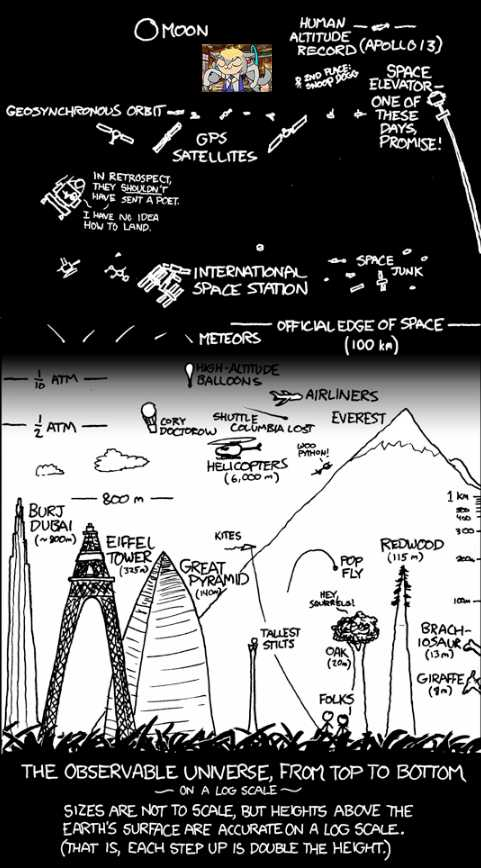 MOON
HUMAN
ALTITUDE
RECORD
(APOLLO 13)
2ND PLACE:
SNOOP DOGG
SPACE
ELEVATOR—
ONE OF
THESE
DAYS,
PROMISE!
GEOSYNCHRONOUS ORBIT
GPS
SATELLITES
IN RETROSPECT,
THEY SHOULDN'T
HAVE SENT A POET.
I HAVE NO IDEA
HOW TO LAND.
INTERNATIONAL
SPACE STATION
SPACE
JUNK
METEORS
OFFICIAL EDGE OF SPACE
(100 km)
HIGH-ALTITUDE
BALLOONS
1/10 ATM
AIRLINERS
1/2 ATM
CORY
DOCTOROW
SHUTTLE
COLUMBIA LOST
EVEREST
HELICOPTERS
(6,000 m)
WOO
PYTHON!
800 m
1 km
500
400
300
200m
100m
BURJ
DUBAI
(~800m)
EIFFEL
TOWER
(325m)
GREAT
PYRAMID
(140m)
KITES
POP
FLY
REDWOOD
(115 m)
HEY,
SQUIRRELS!
OAK
(20m)
TALLEST
STILTS
BRACH-
IOSAUR
(13m)
GIRAFFE
(8m)
FOLKS
THE OBSERVABLE UNIVERSE, FROM TOP TO BOTTOM
~ ON A LOG SCALE ~
SIZES ARE NOT TO SCALE, BUT HEIGHTS ABOVE THE
EARTH'S SURFACE ARE ACCURATE ON A LOG SCALE.
(THAT IS, EACH STEP UP IS DOUBLE THE HEIGHT.)